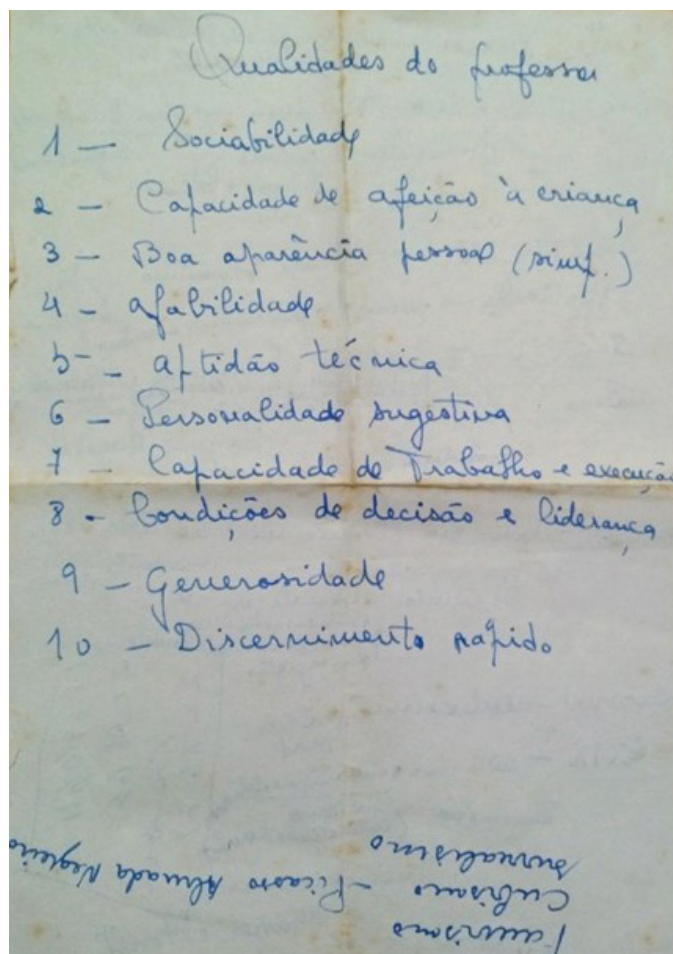 Qualidades do professor
1 — Sociabilidade
2 — Capacidade de afeição à criança
3 — Boa aparência pessoal (simp.)
4 — afabilidade
5 — aptidão técnica
6 — Personalidade sugestiva
7 — Capacidade de Trabalho e execução
8 — Condições de decisão e liderança
9 — Generosidade
10 — Discernimento rápido
Fauvismo
Cubismo — Picasso Almada Negreiro
Surrealismo